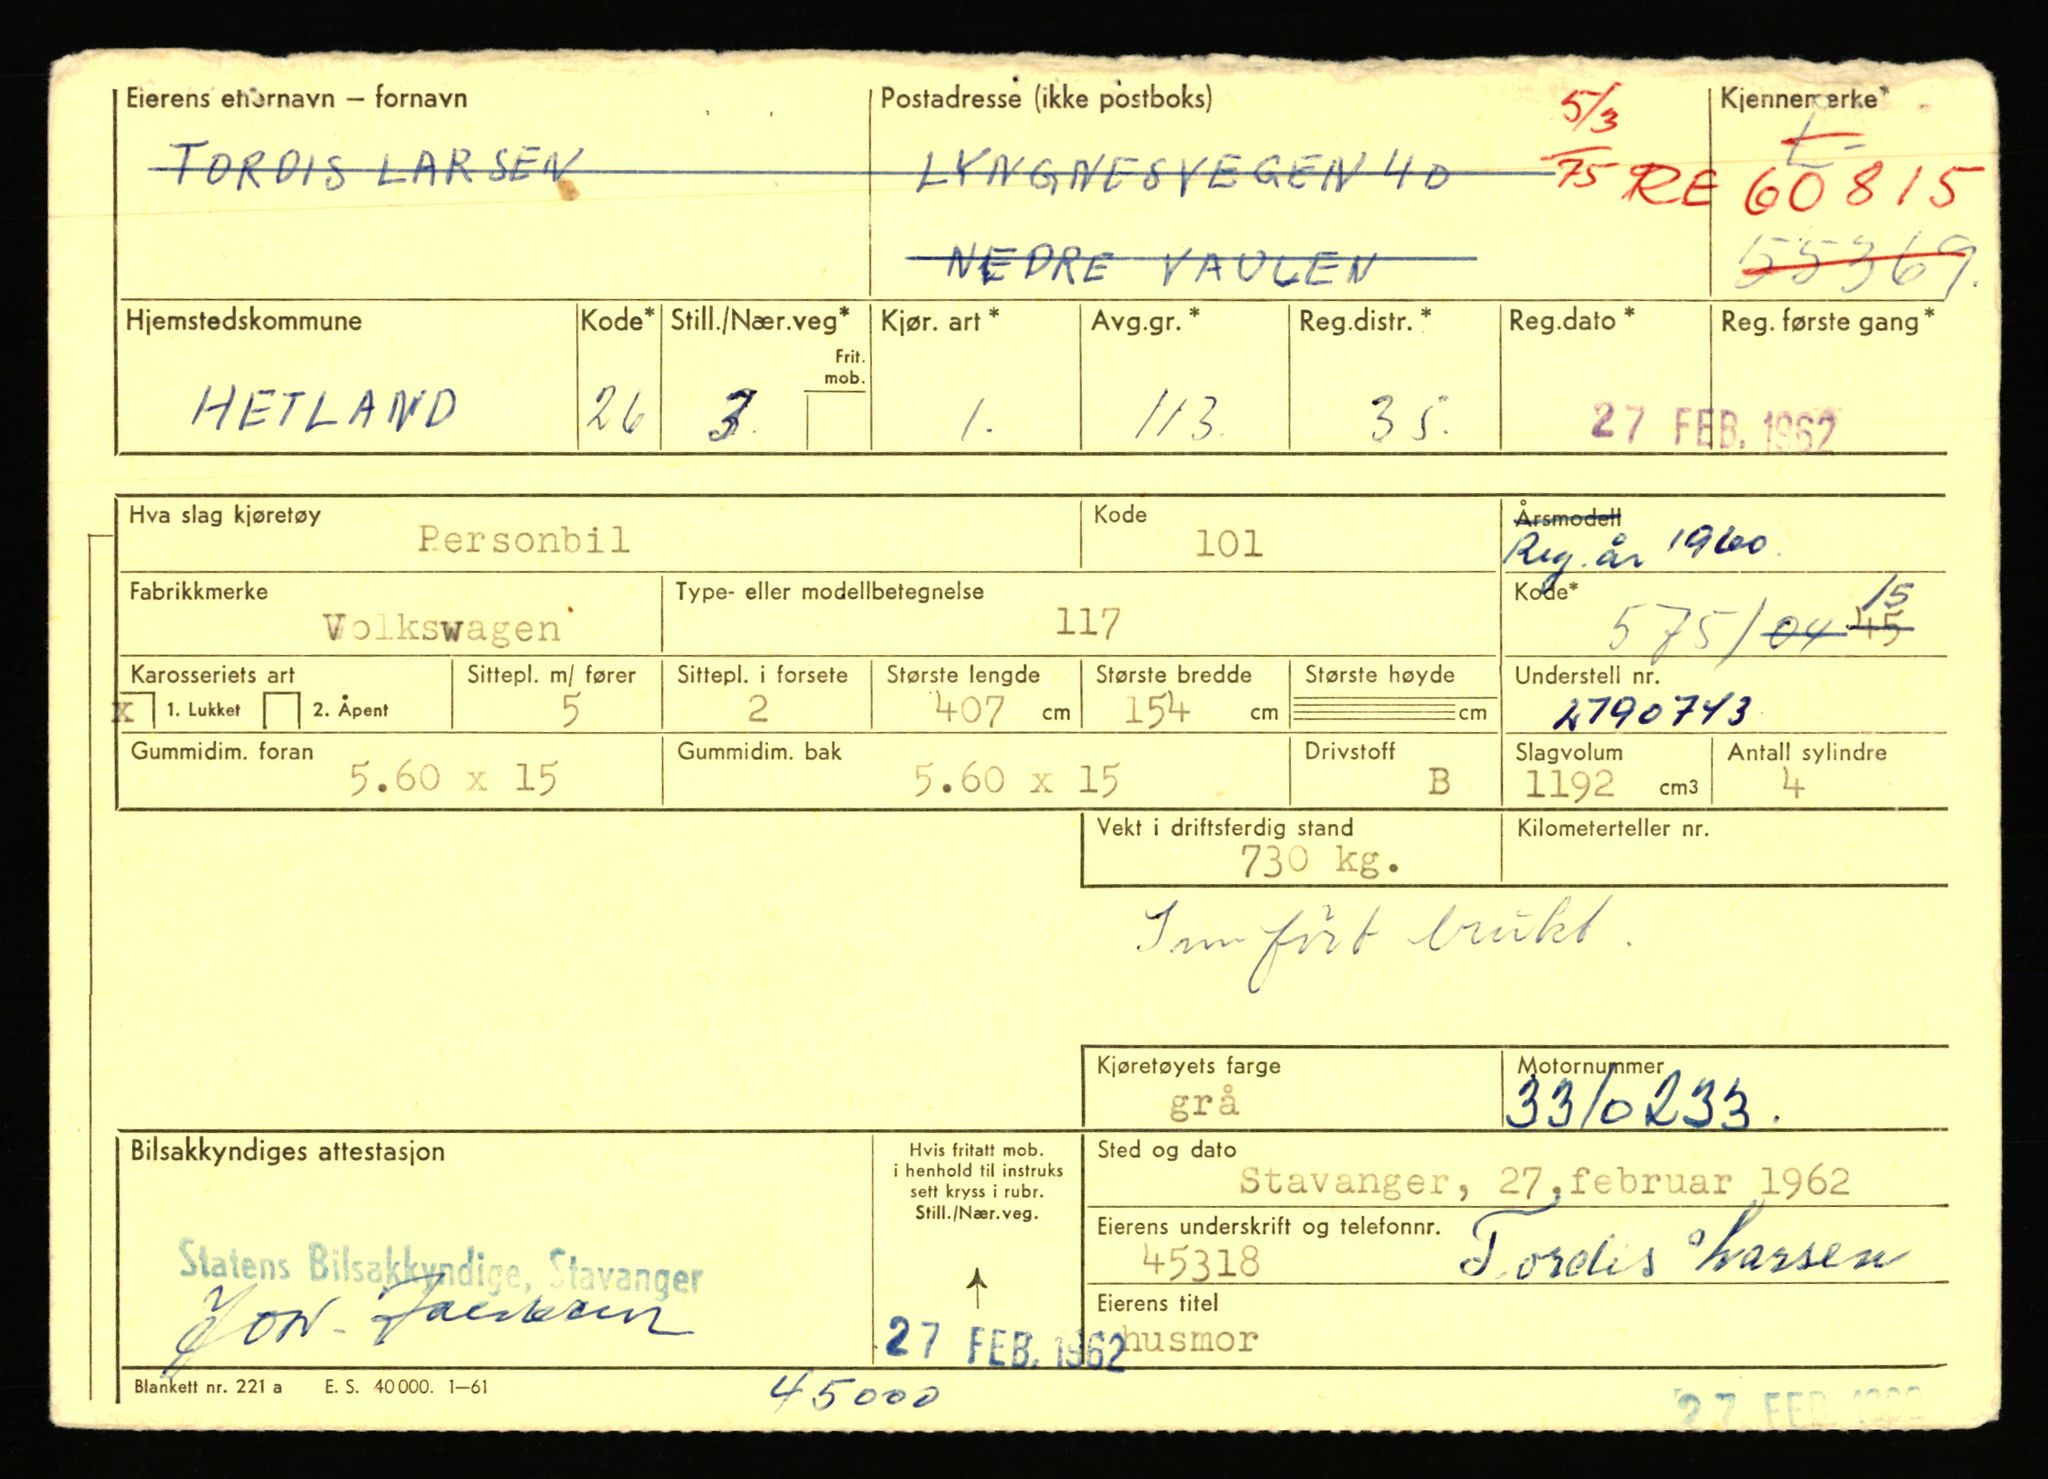 Eierens etternavn – fornavn
TORDIS LARSEN
Postadresse (ikke postboks)
LYNGNESVEGEN 40
NEDRE VAULEN
5/3
75 RE
Kjennemerke*
L-
60815
55369.
Hjemstedskommune
HETLAND
Kode*
26
Still./Nær.veg*
3.
Frit.
mob.
Kjør. art*
1.
Avg.gr.*
113.
Reg.distr.*
35.
Reg.dato*
27 FEB. 1962
Reg. første gang*
Hva slag kjøretøy
Personbil
Kode
101
Årsmodell
Reg. år 1960.
Fabrikkmerke
Volkswagen
Type- eller modellbetegnelse
117
Kode*
575/04 45
15
Karosseriets art
x 1. Lukket 2. Åpent
Sittepl. m/ fører
5
Sittepl. i forsete
2
Største lengde
407 cm
Største bredde
154 cm
Største høyde
cm
Understell nr.
2790743
Gummidim. foran
5.60 x 15
Gummidim. bak
5.60 x 15
Drivstoff
B
Slagvolum
1192 cm3
Antall sylindre
4
Vekt i driftsferdig stand
730 kg.
Kilometerteller nr.
Innført brukt.
Kjøretøyets farge
grå
Motornummer
3310233.
Bilsakkyndiges attestasjon
Statens Bilsakkyndige, Stavanger
Hvis fritatt mob.
i henhold til instruks
sett kryss i rubr.
Still./Nær.veg.
27 FEB. 1962
Sted og dato
Stavanger, 27.februar 1962
Eierens underskrift og telefonnr.
45318 Tordis Larsen
Eierens titel
husmor
Blankett nr. 221 a E. S. 40 000. 1–61
45000
27 FEB. 1962